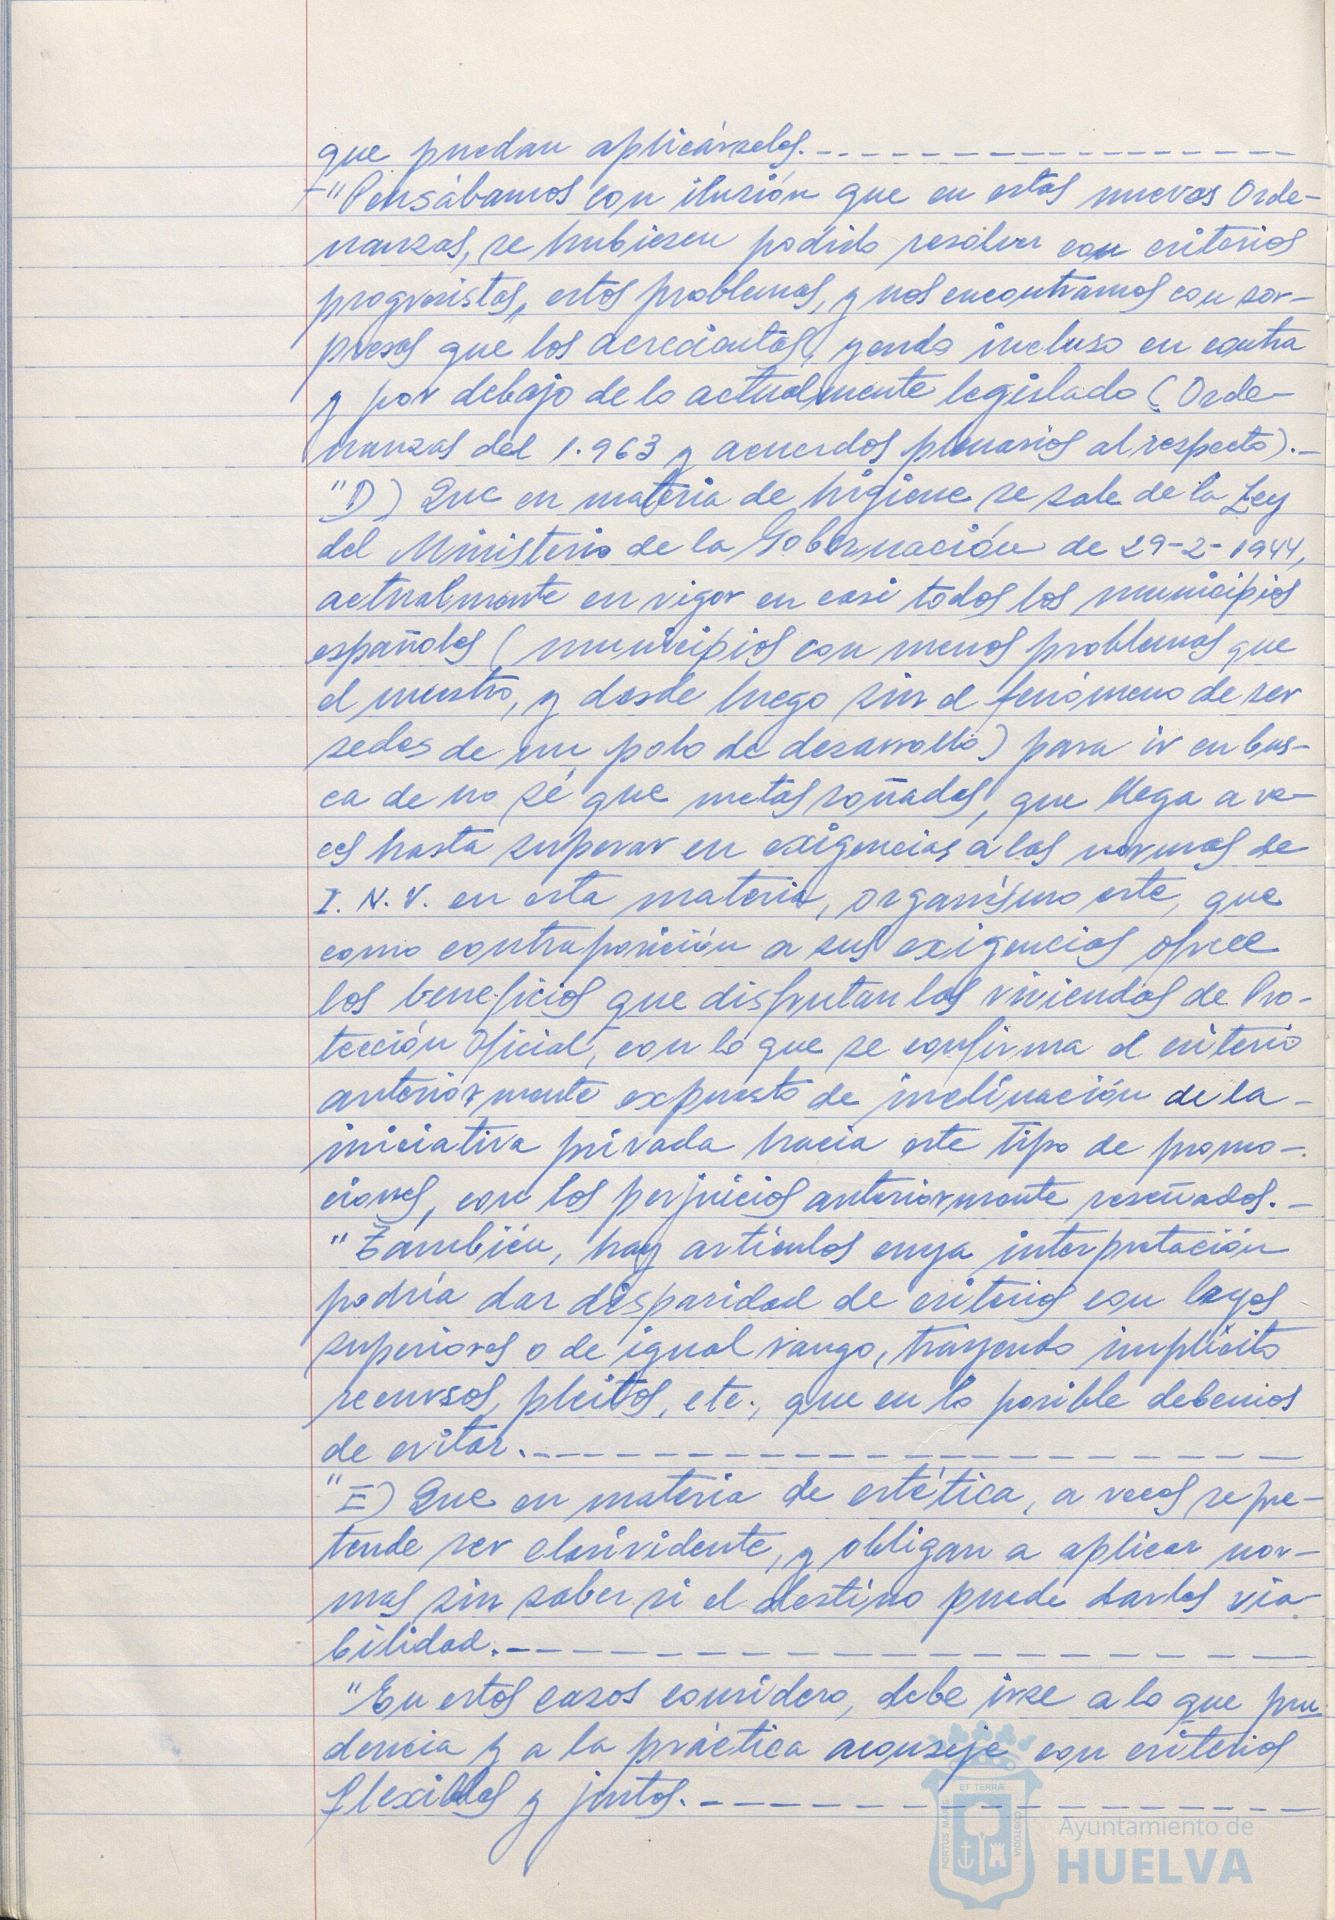 que puedan aplicárselos.
"Pensábamos con ilusión que en estas nuevas Orde-
nanzas, se hubiesen podido resolver con criterios
progresistas, estos problemas, y nos encontramos con sor-
presas que los acrecientas, yendo incluso en contra
y por debajo de lo actualmente legislado (Orde-
nanzas del 1.963 y acuerdos plenarios al respecto).-
"D) Que en materia de higiene se sale de la Ley
del Ministerio de la Gobernación de 29-2-1944,
actualmente en vigor en casi todos los municipios
españoles (municipios con menos problemas que
el nuestro, y desde luego sin el fenómeno de ser
sedes de un polo de desarrollo) para ir en bus-
ca de no sé que metas soñadas, que llega a ve-
ces hasta superar en exigencias a las normas de
I. N. V. en esta materia, organísmo este, que
como contraposición a sus exigencias ofrece
los beneficios que disfrutan las viviendas de Pro-
tección Oficial, con lo que se confirma el criterio
anteriormente expuesto de inclinación de la-
iniciativa privada hacia este tipo de promo-
ciones, con los perjuicios anteriormente reseñados.-
"También, hay artículos cuya interpretación
podría dar disparidad de criterios con leyes
superiores o de igual rango, trayendo implícito
recursos, pleitos, etc., que en lo posible debemos
de evitar.
"E) Que en materia de estética, a veces se pre-
tende ser clarividente, y obligan a aplicar nor-
mas sin saber si el destino puede darles via-
bilidad.
"En estos casos considero, debe irse a lo que pru
dencia y a la práctica aconseje con criterios
flexibles y justos.
PORTUS MARIS
ET TERRAE
CUSTODIA
Ayuntamiento de
HUELVA